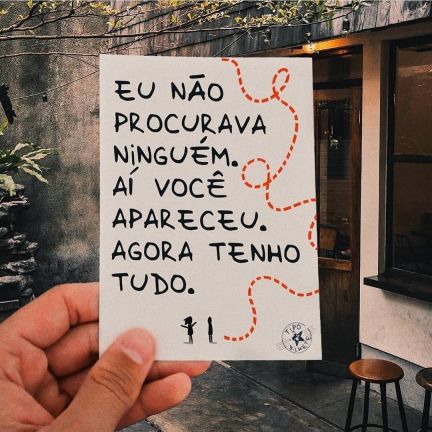 EU NÃO
PROCURAVA
NINGUÉM.
AÍ VOCÊ
APARECEU.
AGORA TENHO
TUDO.